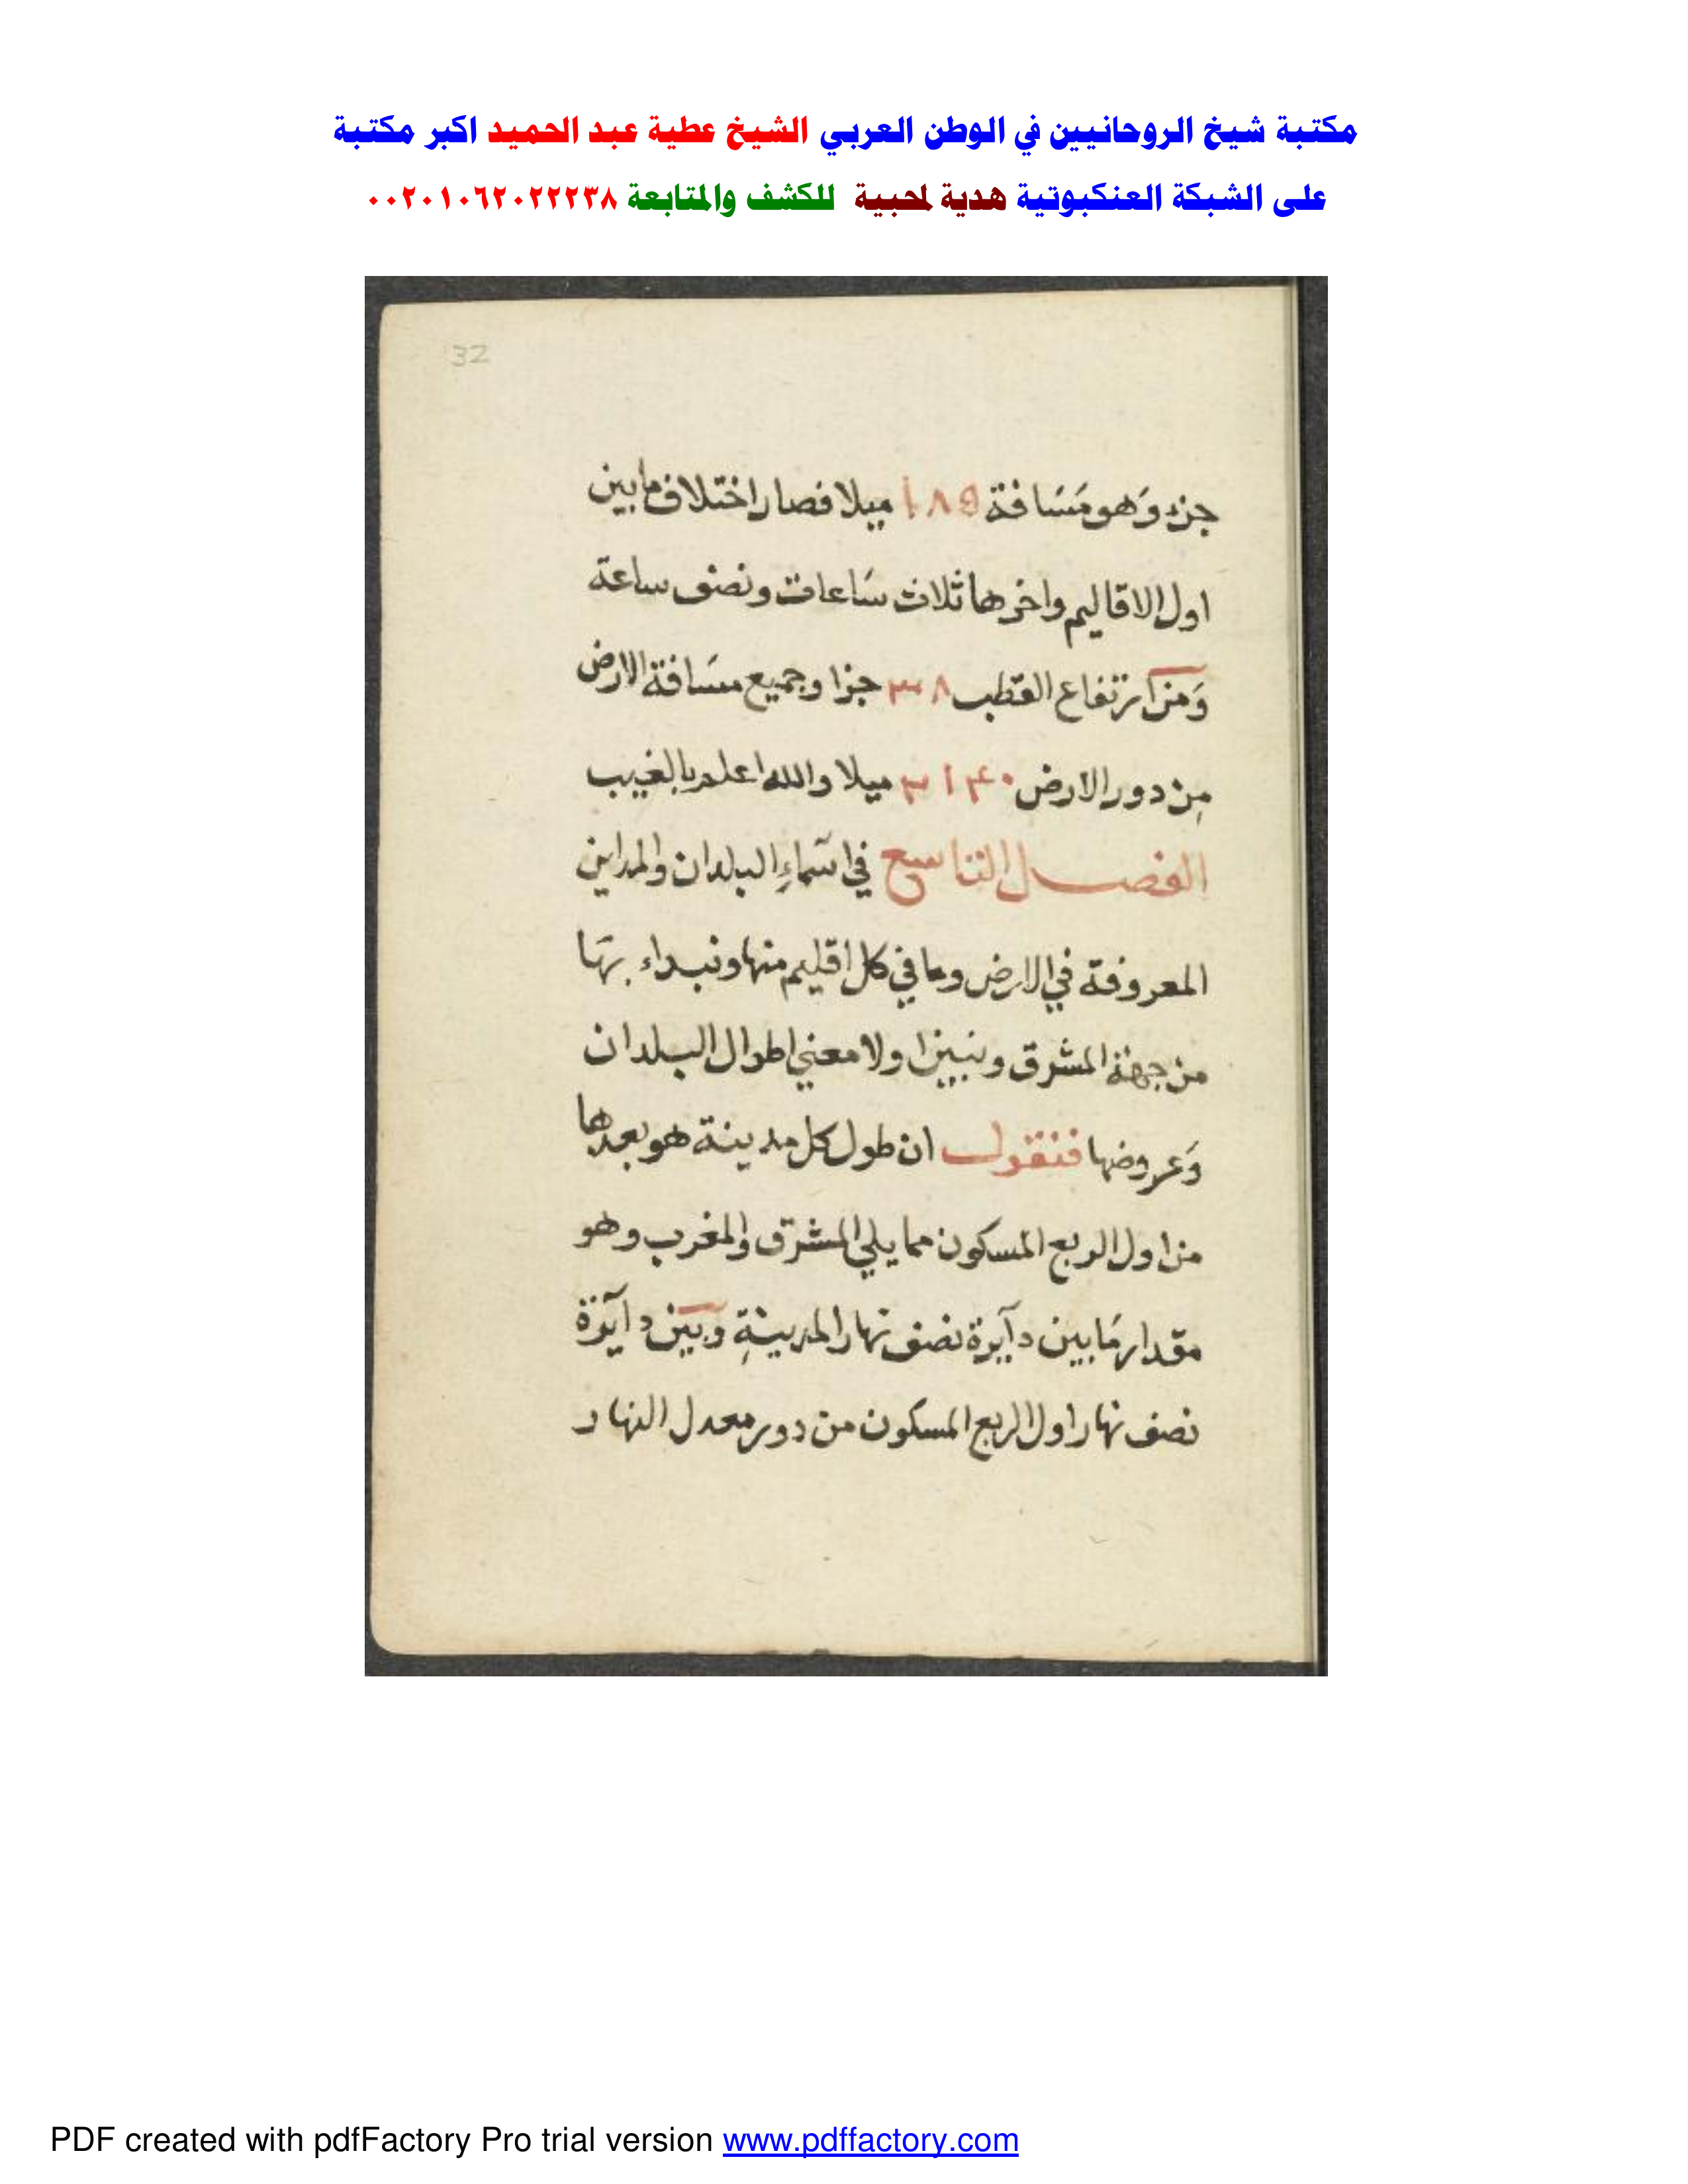 مكتبة شيخ الروحانيين في الوطن العربي الشيخ عطية عبد الحميد اكبر مكتبة
على الشبكة العنكبوتية هدية لمحبية للكشف والمتابعة ٠٠٢٠١٠٦٢٠٢٢٢٣٨
32
جزء وَهو مَسَافة ١٨٥ ميلا فصار اختلاف ما بين
اول الاقاليم واخرها ثلاث سَاعات ونصف ساعة
وَمن ارتفاع القطب ٣٨ جزا وجميع مسَافة الارض
مِن دور الارض ٣١٤٠ ميلا والله اعلم بالغيب
الفصل التاسع في اسَماءِ البلدان والمداين
المعروفة في الارض وما في كل اقليم منها ونبداء بهَا
من جهة المشرق ونبين اولا معني اطوال البلدان
وَعروضها فنقول ان طول كل مدينة هو بعدها
من اول الربع المسكون مما يلي المشرق والمغرب وهو
مقدار مَا بين دآيرة نصف نهار المدينةِ وبَين دآيرة
نصف نهار اول الربع المسكون من دور معدل النهار
PDF created with pdfFactory Pro trial version www.pdffactory.com